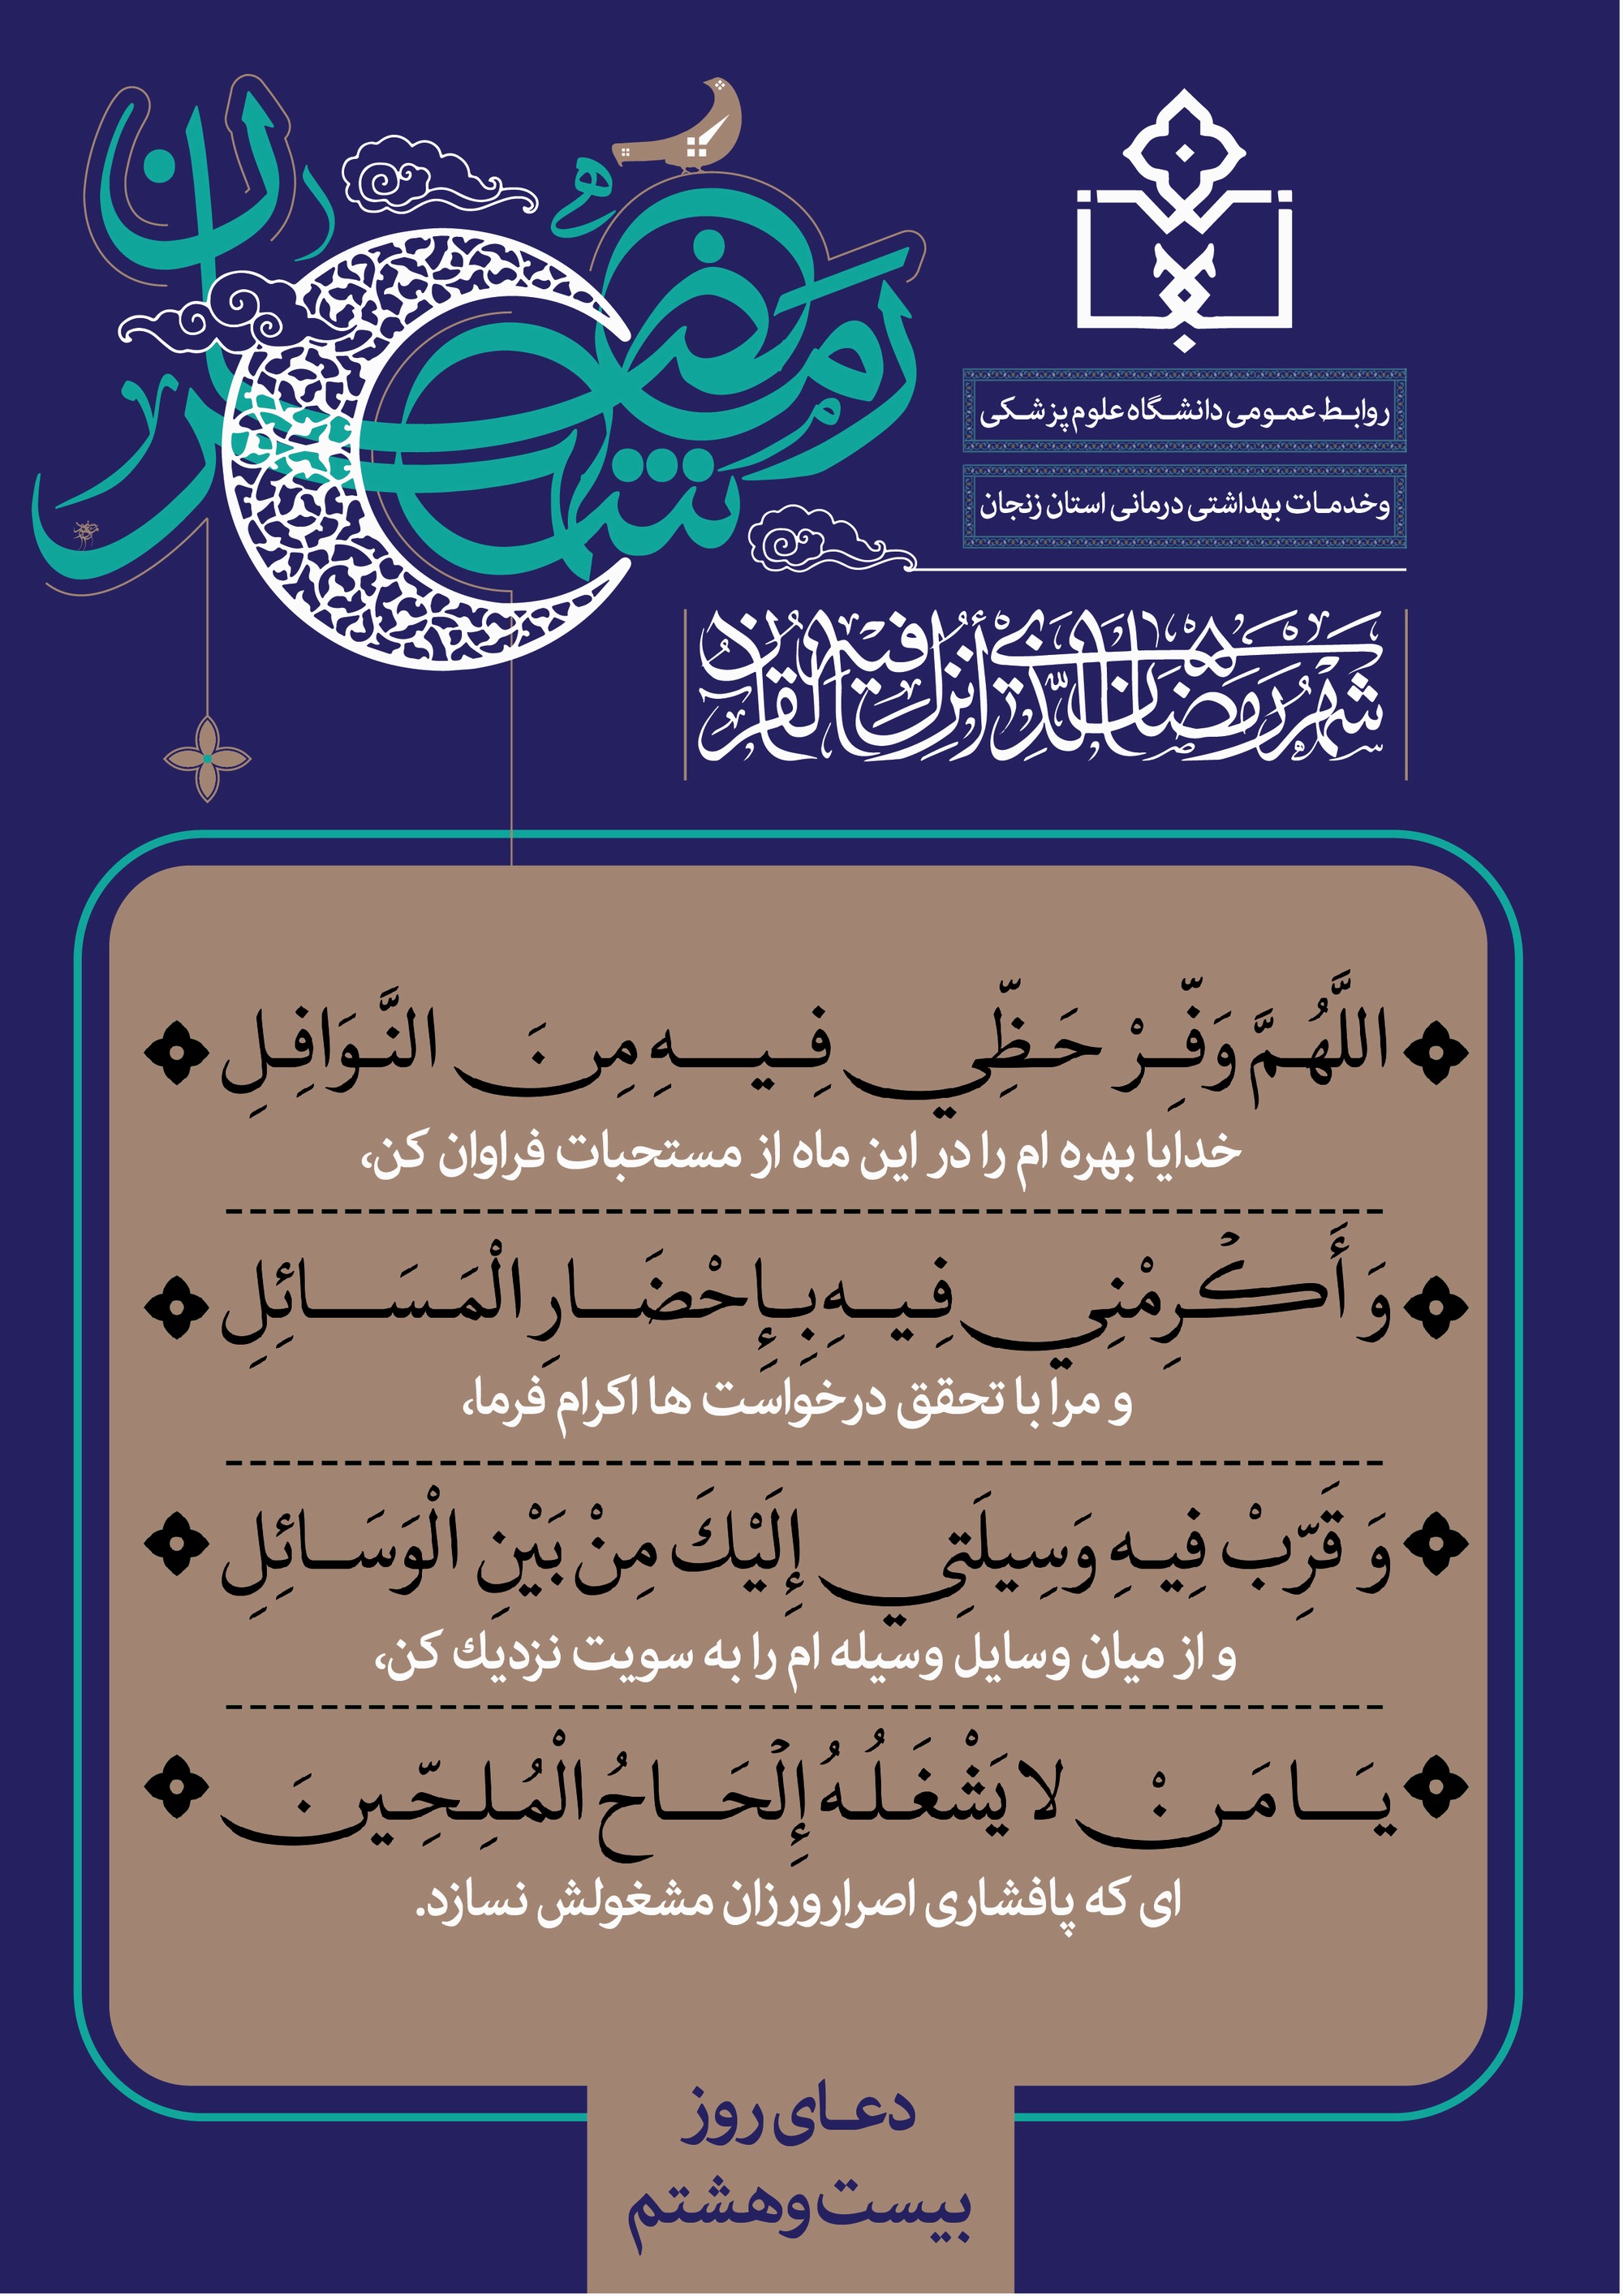 شهر رمضان
روابط عمومی دانشگاه علوم پزشکی
وخدمات بهداشتی درمانی استان زنجان
شهر رمضان الذي أنزل فيه القرآن
اللهُمَّ وَفِّرْ حَظِّي فِيهِ مِنَ النَّوَافِلِ
خدایا بهره ام را در این ماه از مستحبات فراوان کن،
وَ أَكْرِمْنِي فِيهِ بِإِحْضَارِ الْمَسَائِلِ
و مرا با تحقق درخواست ها اکرام فرما،
وَ قَرِّبْ فِيهِ وَسِيلَتِي إِلَيْكَ مِنْ بَيْنِ الْوَسَائِلِ
و از میان وسایل وسیله ام را به سویت نزدیك کن،
يَا مَنْ لا يَشْغَلُهُ إِلْحَاحُ الْمُلِحِّينَ
ای که پافشاری اصرارورزان مشغولش نسازد.
دعای روز
بیست‌وهشتم